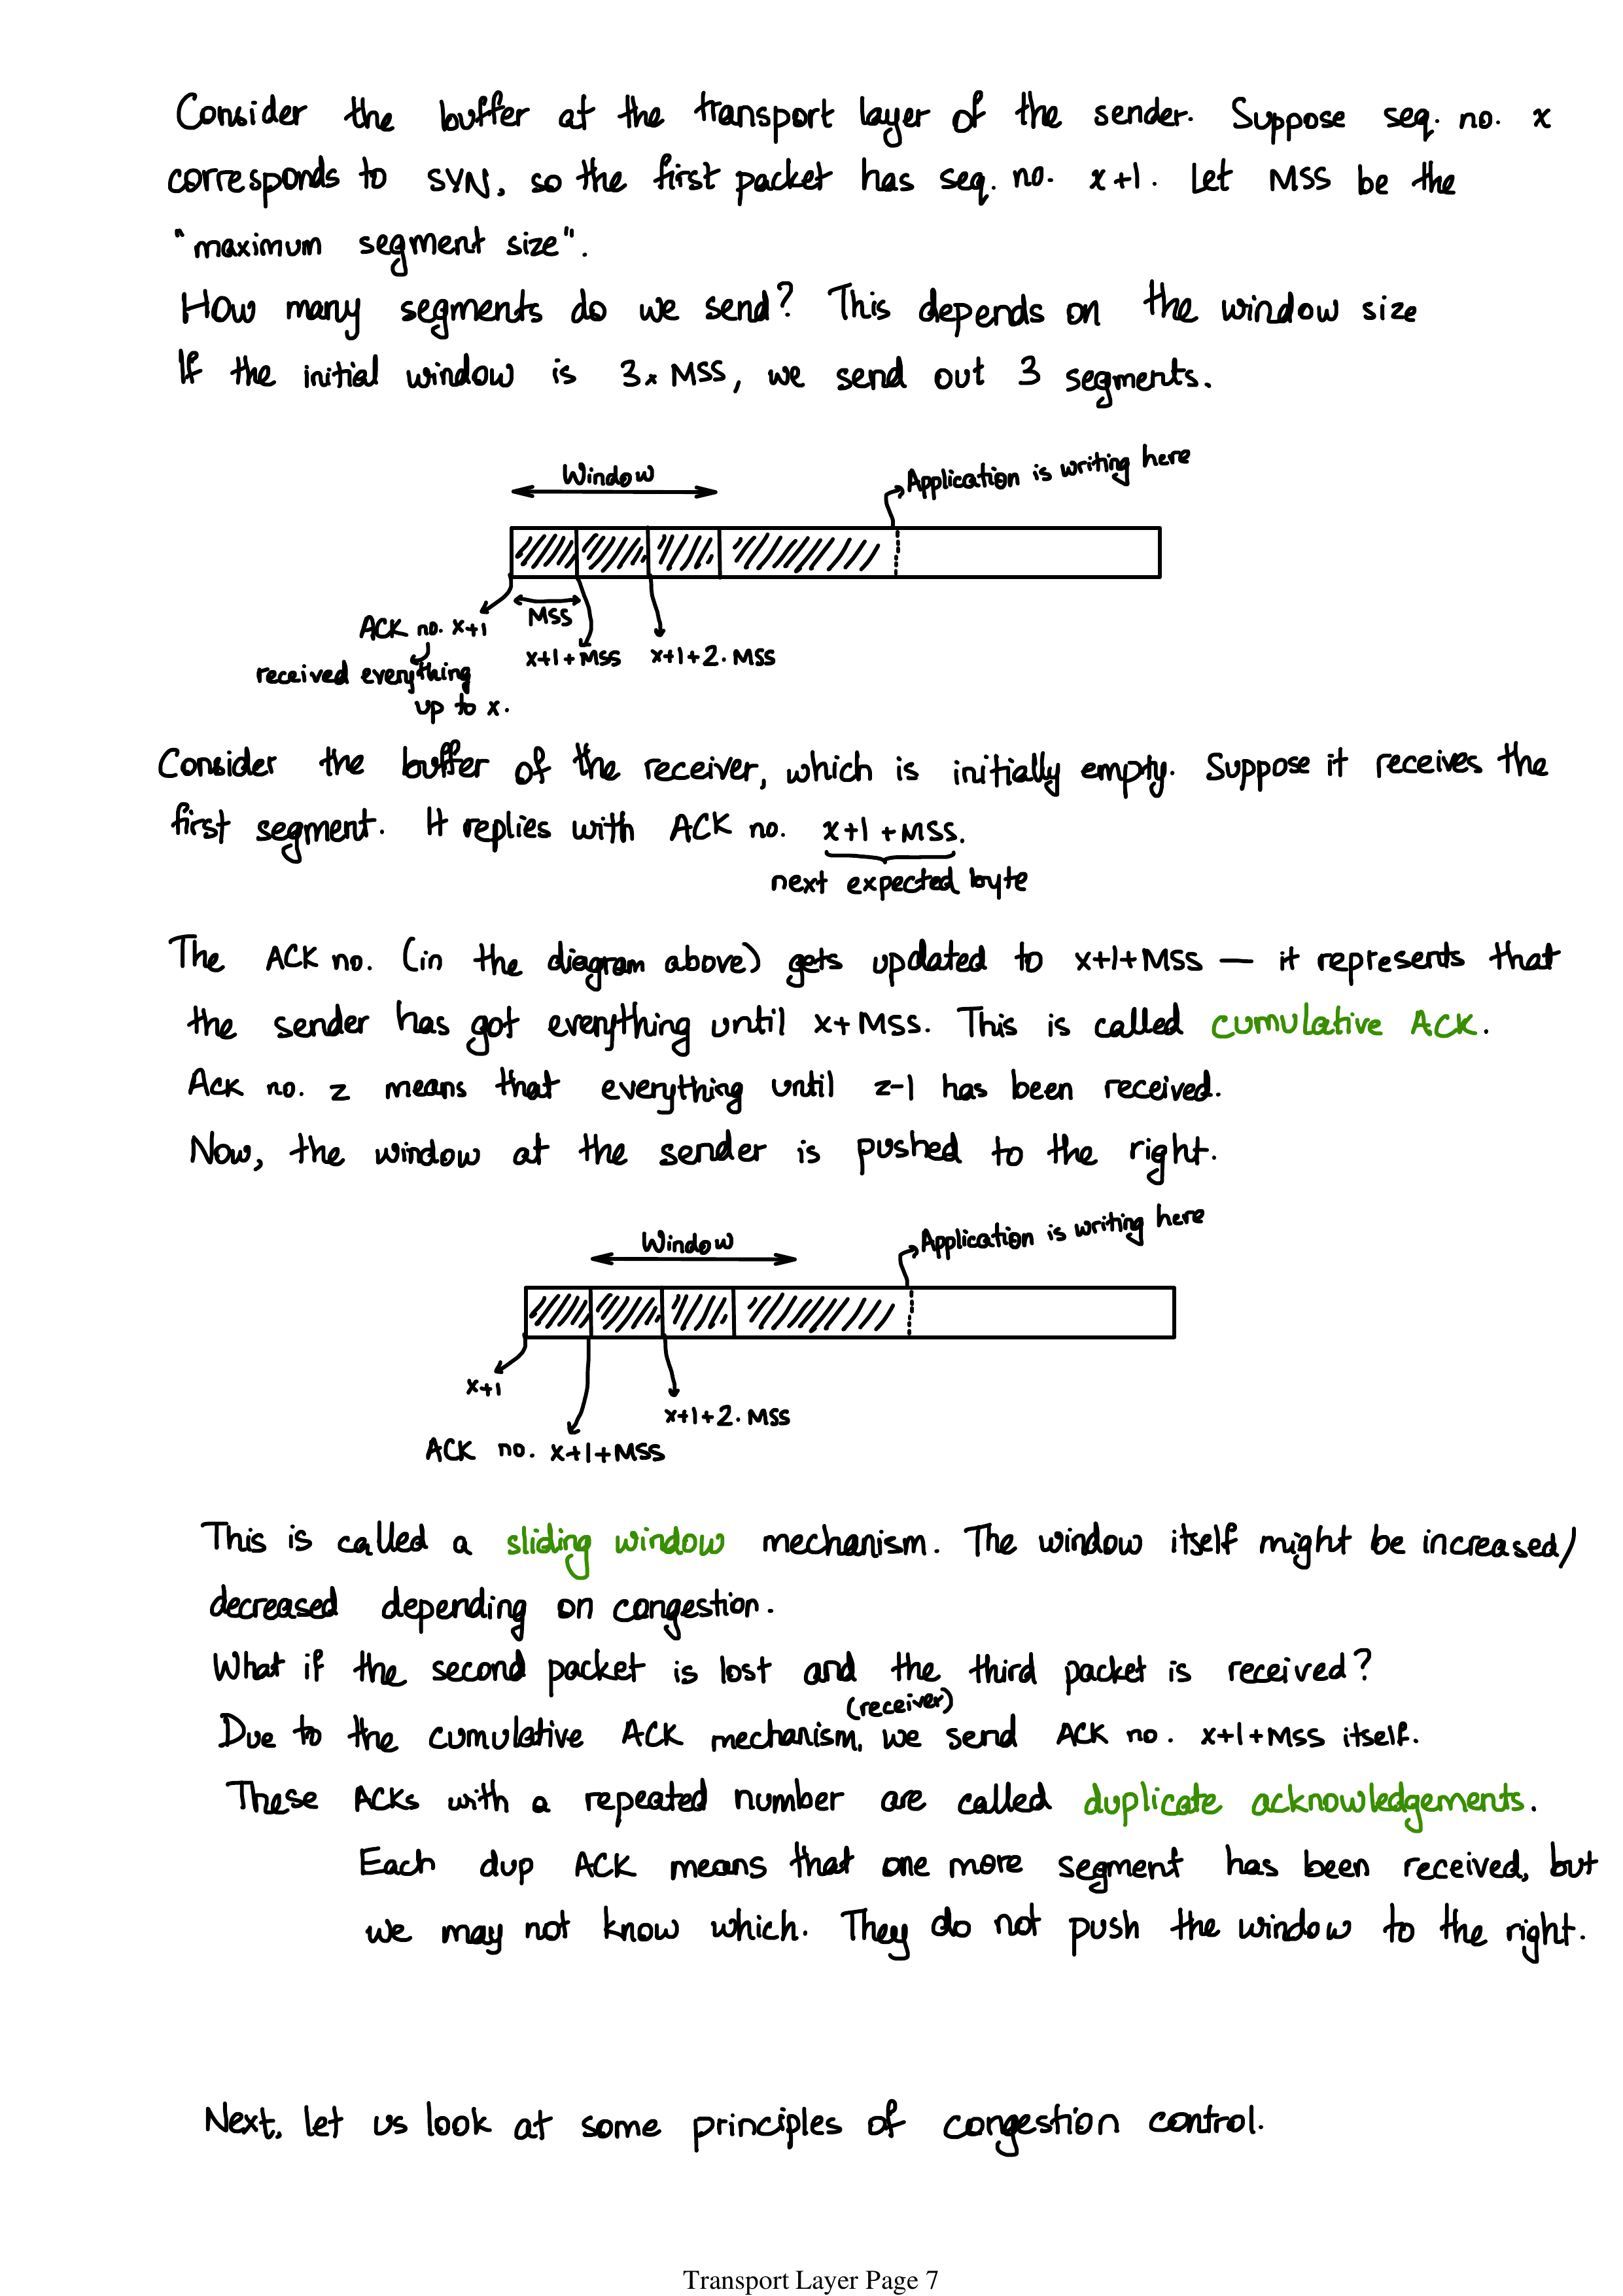 Consider the buffer at the transport layer of the sender. Suppose seq. no. x
corresponds to SYN, so the first packet has seq. no. x+1. Let MSS be the
"maximum segment size".
How many segments do we send? This depends on the window size
If the initial window is 3×MSS, we send out 3 segments.
Window
Application is writing here
MSS
ACK no. x+1
x+1+MSS
x+1+2.MSS
received everything
up to x.
Consider the buffer of the receiver, which is initially empty. Suppose it receives the
first segment. It replies with ACK no. x+1+MSS.
next expected byte
The ACK no. (in the diagram above) gets updated to x+1+MSS — it represents that
the sender has got everything until x+MSS. This is called cumulative ACK.
Ack no. z means that everything until z-1 has been received.
Now, the window at the sender is pushed to the right.
Window
Application is writing here
x+1
x+1+2.MSS
ACK no. x+1+MSS
This is called a sliding window mechanism. The window itself might be increased/
decreased depending on congestion.
What if the second packet is lost and the third packet is received?
(receiver)
Due to the cumulative ACK mechanism, we send ACK no. x+1+MSS itself.
These ACKs with a repeated number are called duplicate acknowledgements.
Each dup ACK means that one more segment has been received, but
we may not know which. They do not push the window to the right.
Next, let us look at some principles of congestion control.
Transport Layer Page 7